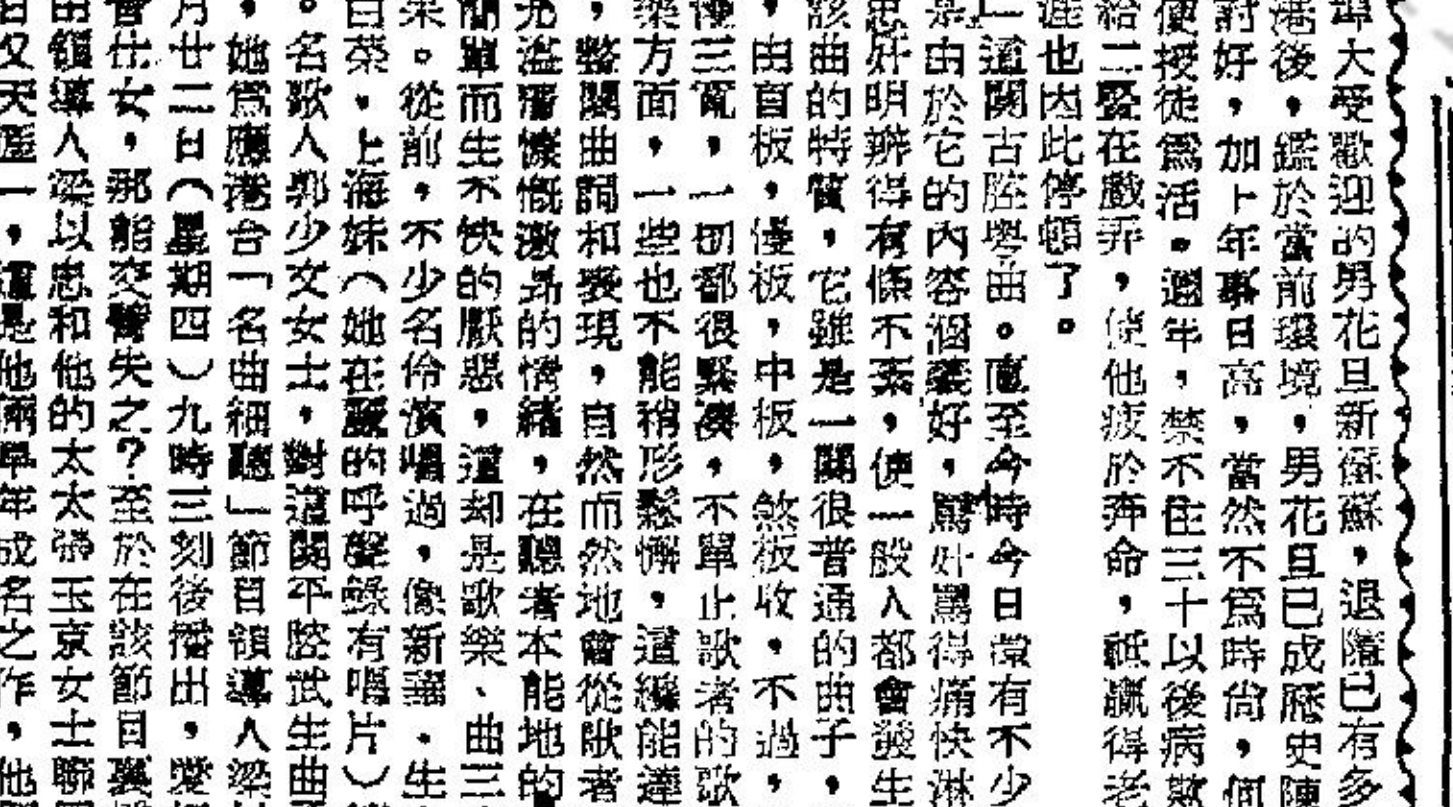 埠大受歡迎的男花旦新蘇蘇，退隱已有多
港後，鑑於當前環境，男花旦已成歷史陳
討好，加上年事日高，當然不爲時尙，何
便授徒爲活。週年，禁不住三十以後病數
給二豎在戲弄，使他疲於奔命，祗贏得老
涯也因此停頓了。
」這闋古腔粵曲。直至今時今日還有不少
是由於它的內容涵義好，罵奸罵得痛快淋
忠奸明辨得有條不紊，使一般人都會發生
該曲的特質，它雖是一闋很普通的曲子，
，由首板，慢板，中板，煞板收，不過，
慢三寃，一切都很緊湊，不單止歌者的歌
樂方面，一些也不能稍形鬆懈，這纔能達
，整闋曲詞和表現，自然而然地會從歌者
充溢着慷慨激昻的情緒，在聽者本能地的
簡單而生不快的厭惡，這却是歌樂、曲三
來。從前，不少名伶演唱過，像新 ，生
白榮，上海妹（她在 的呼聲錄有唱片）
。名歌人郭少文女士，對這闋平腔武生曲
，她爲應港台「名曲細聽」節目領導人梁
月廿二日（星期四）九時三刻後播出，愛
音仕女，那能交臂失之？至於在該節目裏
由領導人梁以忠和他的太太張玉京女士聯
日又天 一，這是他倆早年成名之作，他